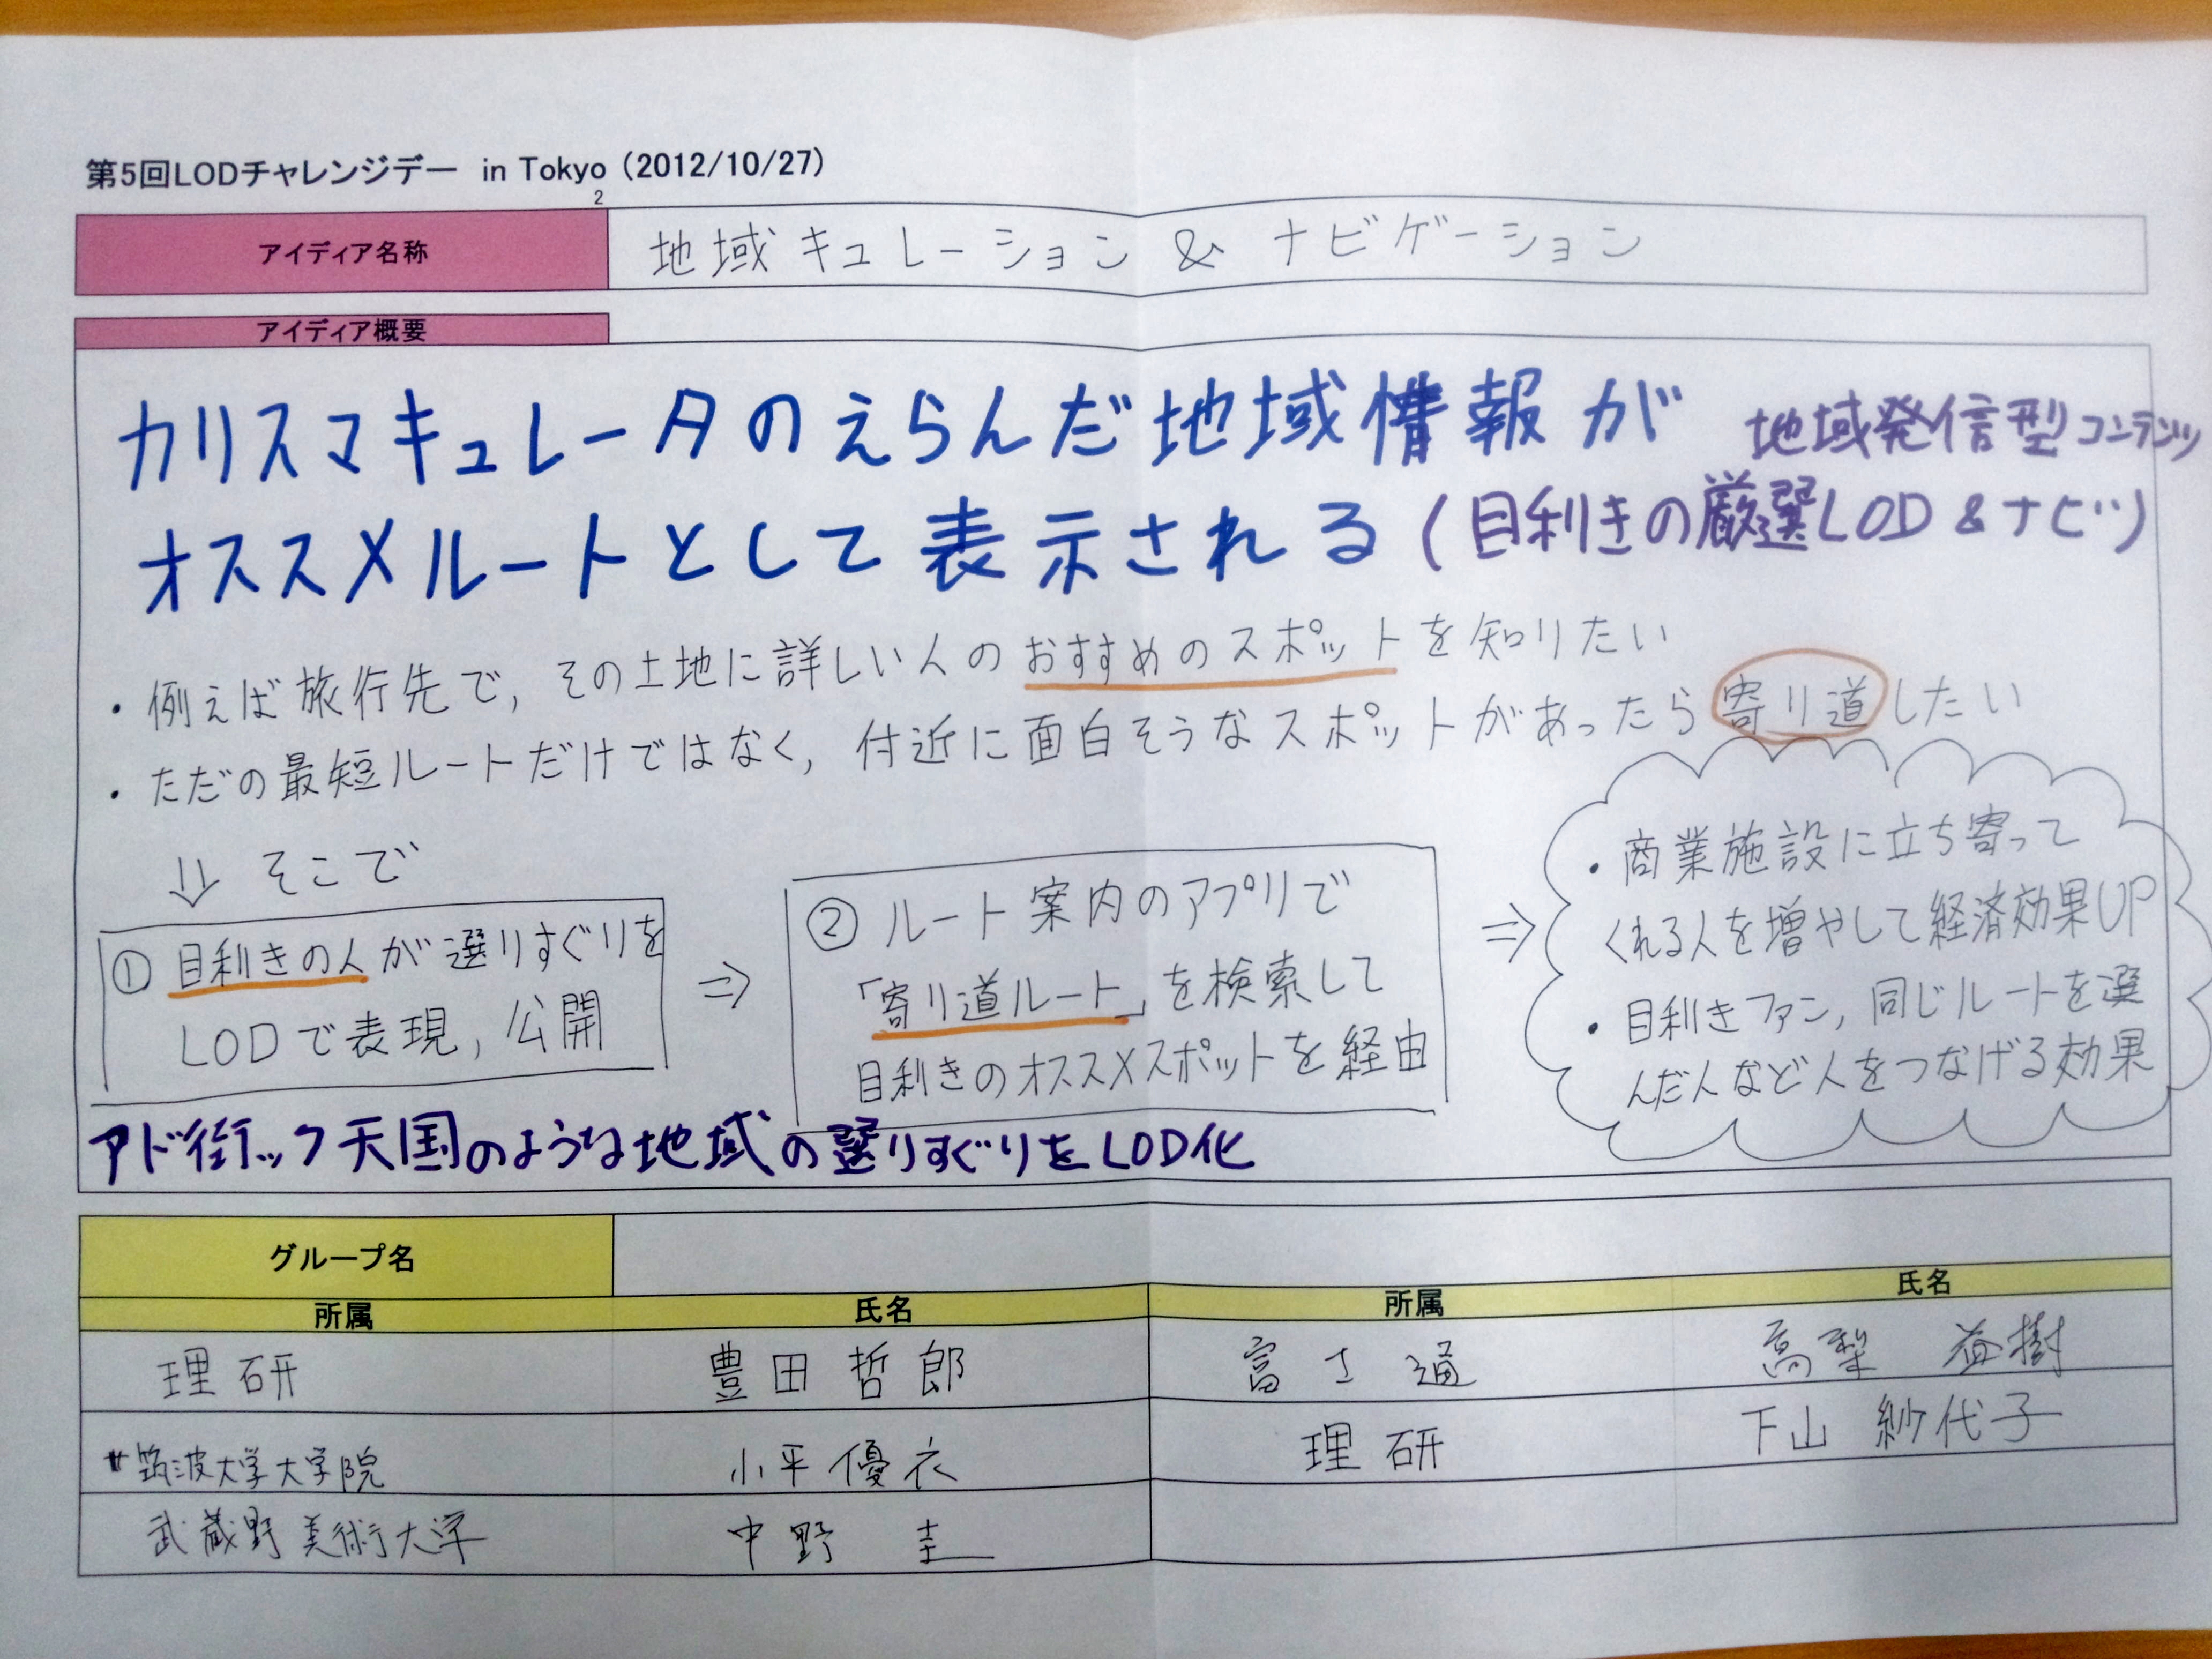 第5回LODチャレンジデー in Tokyo (2012/10/27)
2
アイディア名称
地域キュレーション & ナビゲーション
アイディア概要
カリスマキュレータのえらんだ地域情報が
地域発信型コンテンツ
オススメルートとして表示される
(目利きの厳選LOD&ナビ)
・例えば旅行先で,その土地に詳しい人のおすすめのスポットを知りたい
・ただの最短ルートだけではなく,付近に面白そうなスポットがあったら寄り道したい
⇓ そこで
① 目利きの人が選りすぐりを
LODで表現,公開
⇒
② ルート案内のアプリで
「寄り道ルート」を検索して
目利きのオススメスポットを経由
⇒
・商業施設に立ち寄って
くれる人を増やして経済効果UP
・目利きファン,同じルートを選
んだ人など人をつなげる効果
アド街ック天国のような地域の選りすぐりをLOD化
グループ名
所属 氏名 所属 氏名
理研 豊田哲郎 富士通 高梨 益樹
筑波大学大学院 小平優衣 理研 下山紗代子
武蔵野美術大学 中野 圭